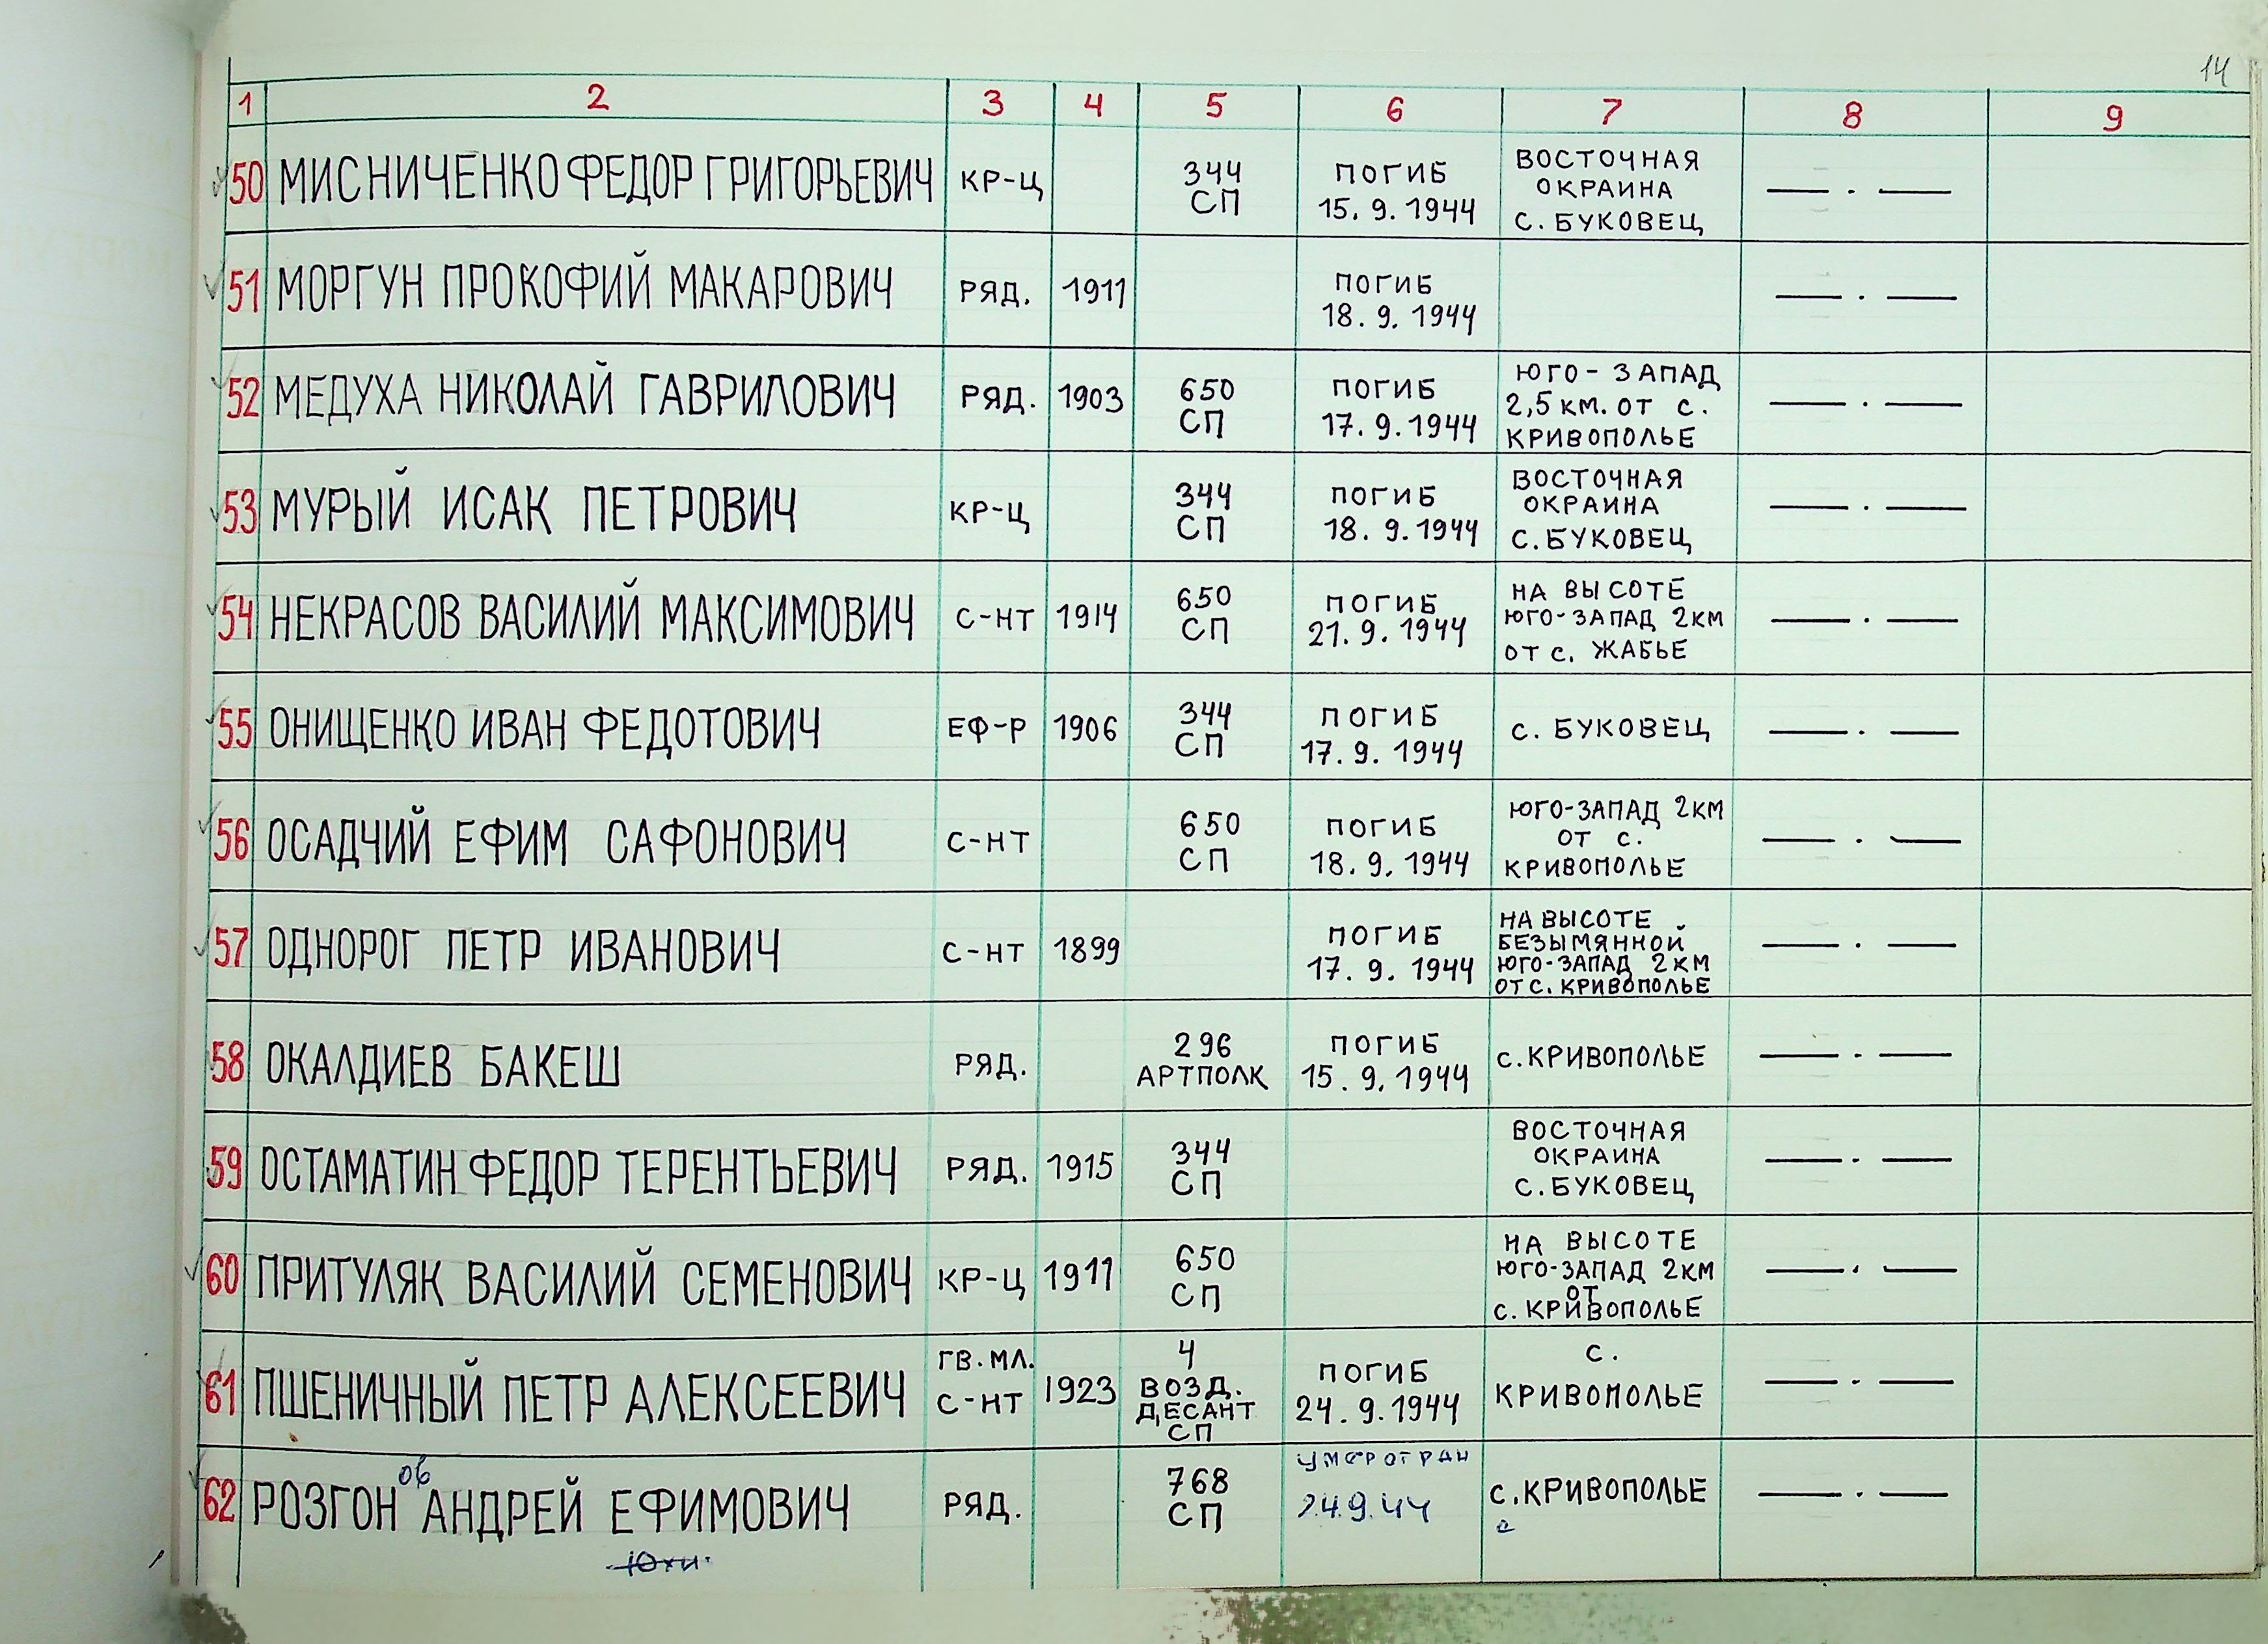 14
1 2 3 4 5 6 7 8 9
50 МИСНИЧЕНКО ФЕДОР ГРИГОРЬЕВИЧ КР-Ц 344 СП ПОГИБ 15.9.1944 ВОСТОЧНАЯ ОКРАИНА С. БУКОВЕЦ — . —
51 МОРГУН ПРОКОФИЙ МАКАРОВИЧ РЯД. 1911 ПОГИБ 18.9.1944 — . —
52 МЕДУХА НИКОЛАЙ ГАВРИЛОВИЧ РЯД. 1903 650 СП ПОГИБ 17.9.1944 ЮГО-ЗАПАД 2,5 КМ. ОТ С. КРИВОПОЛЬЕ — . —
53 МУРЫЙ ИСАК ПЕТРОВИЧ КР-Ц 344 СП ПОГИБ 18.9.1944 ВОСТОЧНАЯ ОКРАИНА С. БУКОВЕЦ — . —
54 НЕКРАСОВ ВАСИЛИЙ МАКСИМОВИЧ С-НТ 1914 650 СП ПОГИБ 21.9.1944 НА ВЫСОТЕ ЮГО-ЗАПАД 2КМ ОТ С. ЖАБЬЕ — . —
55 ОНИЩЕНКО ИВАН ФЕДОТОВИЧ ЕФ-Р 1906 344 СП ПОГИБ 17.9.1944 С. БУКОВЕЦ — . —
56 ОСАДЧИЙ ЕФИМ САФОНОВИЧ С-НТ 650 СП ПОГИБ 18.9.1944 ЮГО-ЗАПАД 2КМ ОТ С. КРИВОПОЛЬЕ — . —
57 ОДНОРОГ ПЕТР ИВАНОВИЧ С-НТ 1899 ПОГИБ 17.9.1944 НА ВЫСОТЕ БЕЗЫМЯННОЙ ЮГО-ЗАПАД 2КМ ОТ С. КРИВОПОЛЬЕ — . —
58 ОКАЛДИЕВ БАКЕШ РЯД. 296 АРТПОЛК ПОГИБ 15.9.1944 С. КРИВОПОЛЬЕ — . —
59 ОСТАМАТИН ФЕДОР ТЕРЕНТЬЕВИЧ РЯД. 1915 344 СП ВОСТОЧНАЯ ОКРАИНА С. БУКОВЕЦ — . —
60 ПРИТУЛЯК ВАСИЛИЙ СЕМЕНОВИЧ КР-Ц 1911 650 СП НА ВЫСОТЕ ЮГО-ЗАПАД 2КМ ОТ С. КРИВОПОЛЬЕ — . —
61 ПШЕНИЧНЫЙ ПЕТР АЛЕКСЕЕВИЧ ГВ. МЛ. С-НТ 1923 4 ВОЗД. ДЕСАНТ СП ПОГИБ 24.9.1944 С. КРИВОПОЛЬЕ — . —
62 РОЗГОНов АНДРЕЙ ЕФИМОВИЧ РЯД. 768 СП УМЕР ОТ РАН 24.9.44 С. КРИВОПОЛЬЕ — . —
Юхи.